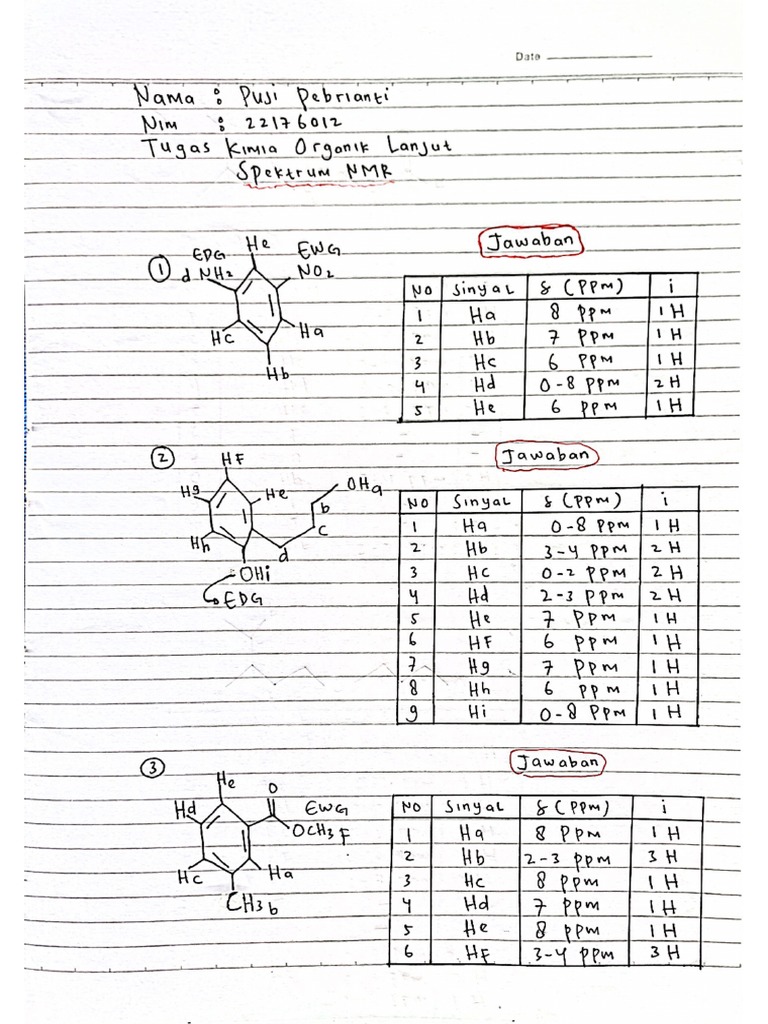 Date
Nama : Puji Pebrianti
Nim : 22176012
Tugas Kimia Organik Lanjut
Spektrum NMR
Jawaban
1
EDG
He
EWG
d NH2
NO2
Hc
Ha
Hb
NO Sinyal δ (PPm) i
1 Ha 8 PPm 1H
2 Hb 7 PPm 1H
3 Hc 6 PPm 1H
4 Hd 0-8 PPm 2H
5 He 6 PPm 1H
2
Jawaban
HF
Hg
He
OHa
b
c
Hh
d
OHi
EDG
NO Sinyal δ (PPm) i
1 Ha 0-8 PPm 1H
2 Hb 3-4 PPm 2H
3 Hc 0-2 PPm 2H
4 Hd 2-3 PPm 2H
5 He 7 PPm 1H
6 HF 6 PPm 1H
7 Hg 7 PPm 1H
8 Hh 6 PPm 1H
9 Hi 0-8 PPm 1H
3
Jawaban
He
O
Hd
EWG
OCH3 F
Hc
Ha
CH3 b
NO Sinyal δ (PPm) i
1 Ha 8 PPm 1H
2 Hb 2-3 PPm 3H
3 Hc 8 PPm 1H
4 Hd 7 PPm 1H
5 He 8 PPm 1H
6 HF 3-4 PPm 3H